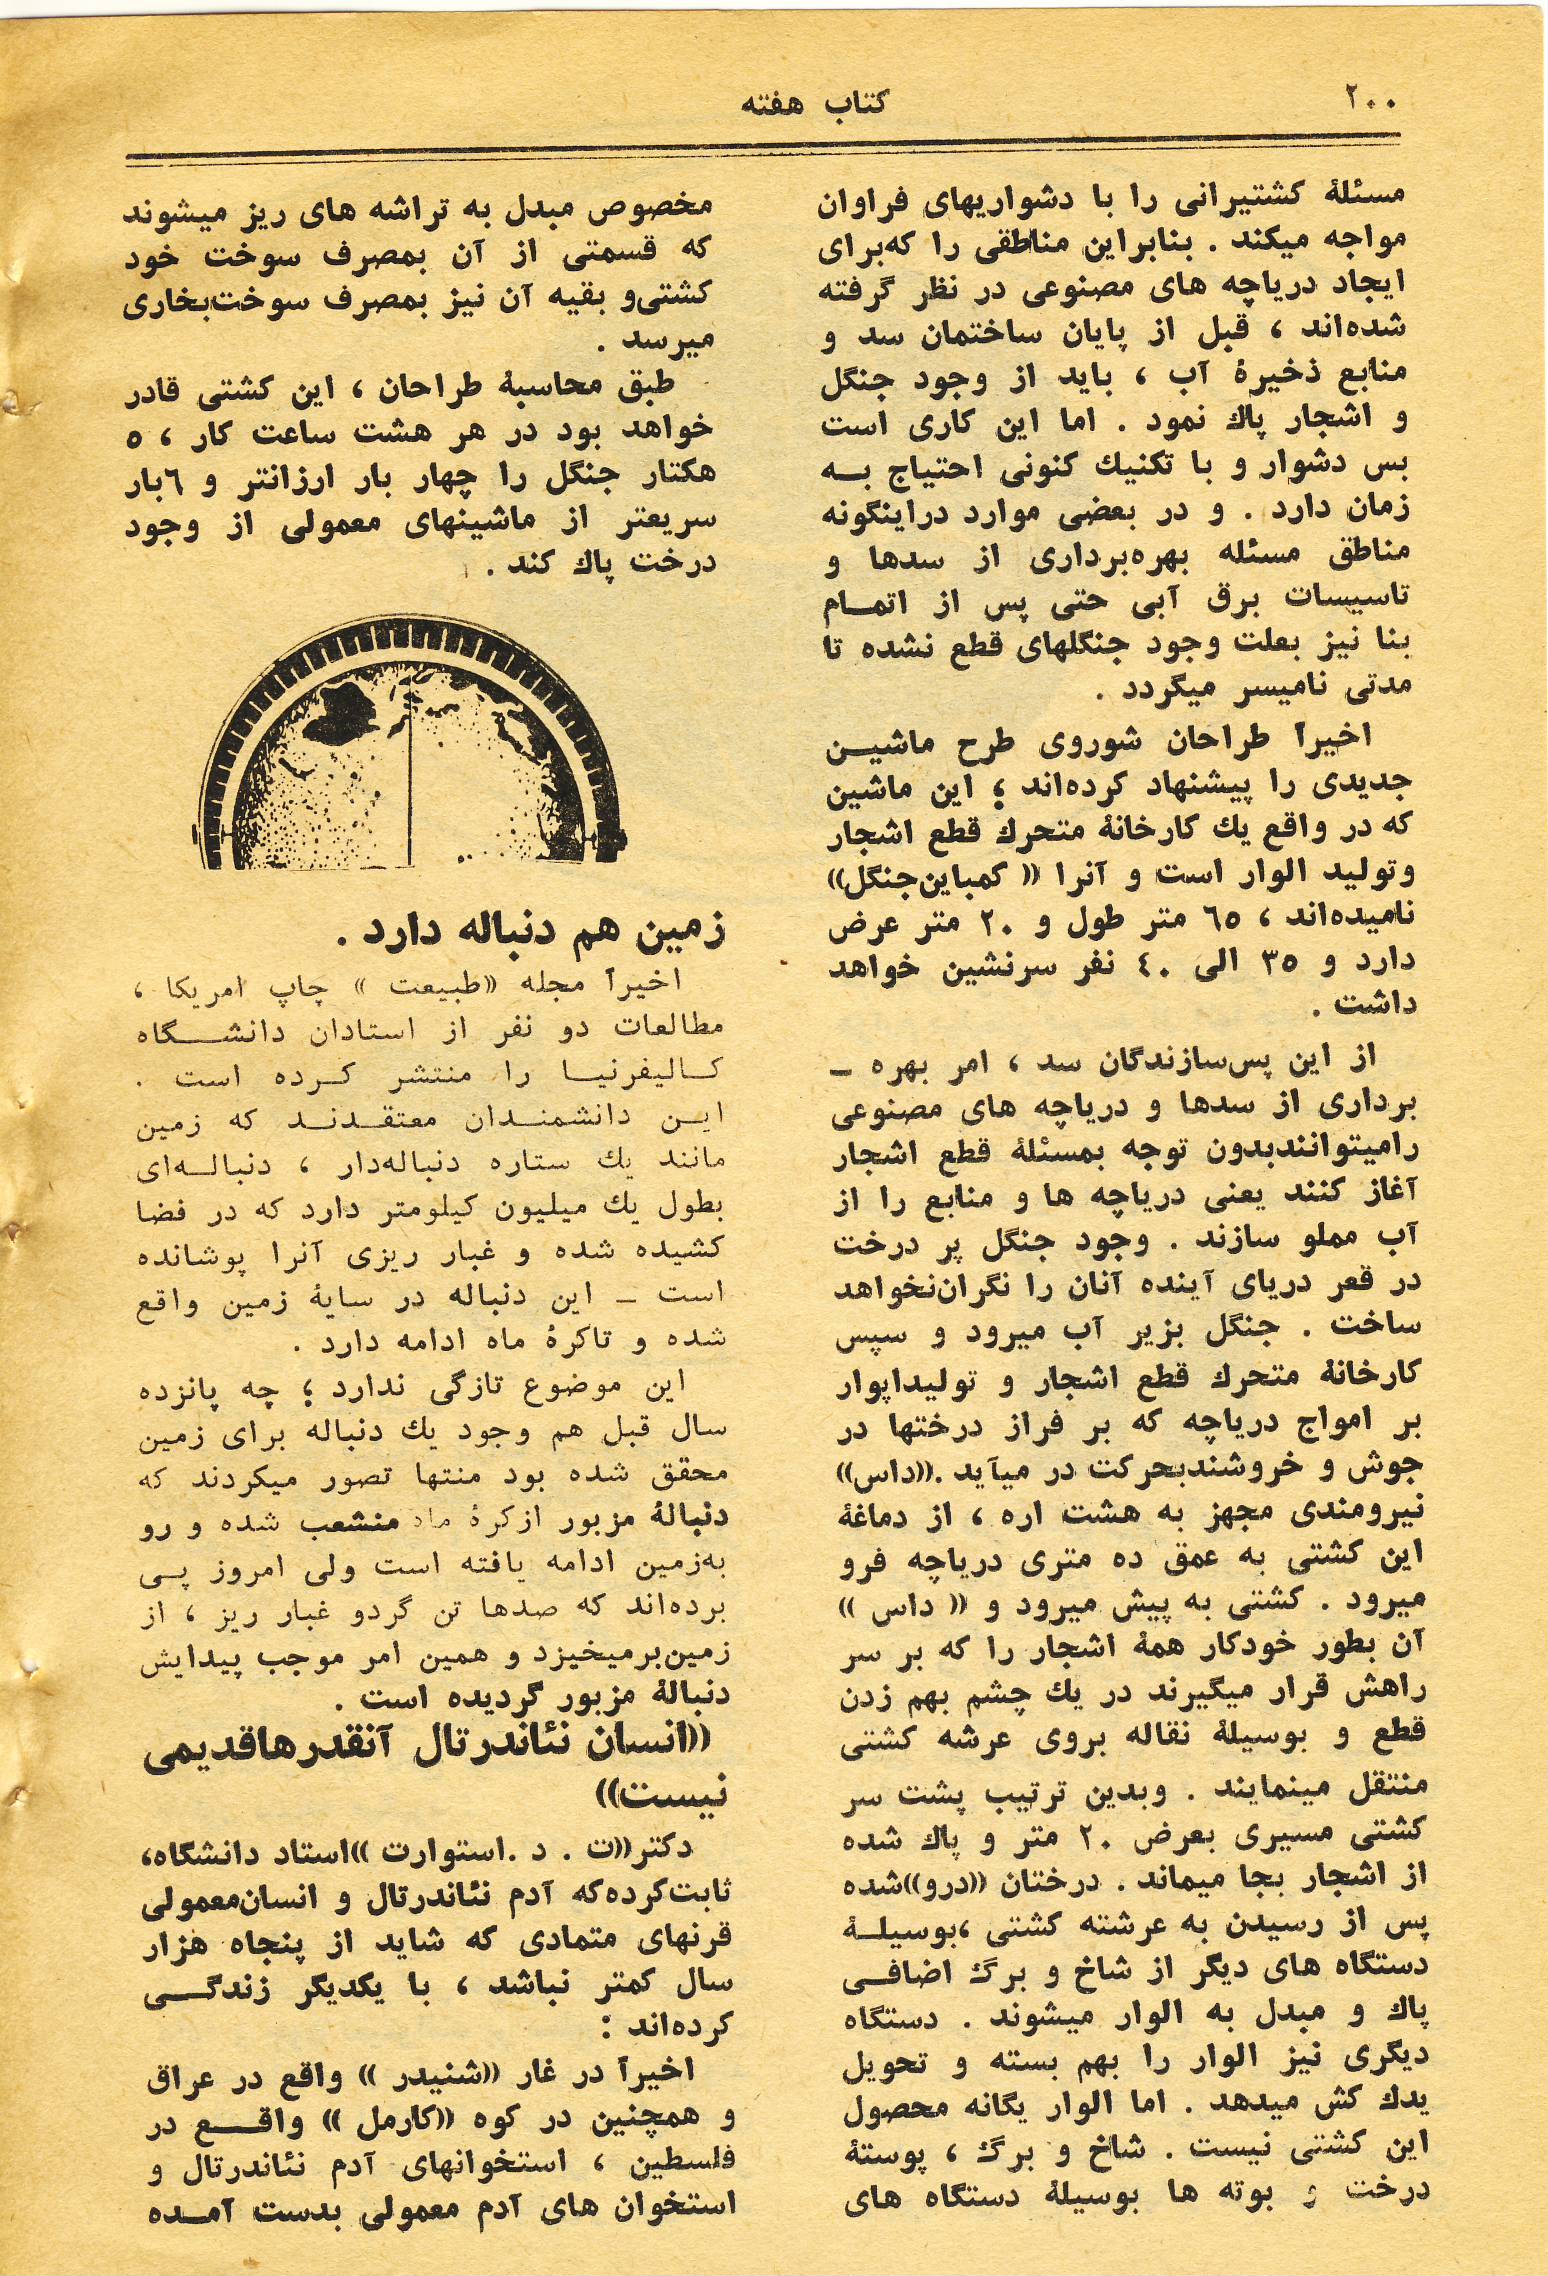 ۲۰۰
کتاب هفته
مسئلهٔ کشتیرانی را با دشواریهای فراوان
مواجه میکند . بنابراین مناطقی را که‌برای
ایجاد دریاچه های مصنوعی در نظر گرفته
شده‌اند ، قبل از پایان ساختمان سد و
منابع ذخیرهٔ آب ، باید از وجود جنگل
و اشجار پاك نمود . اما این کاری است
بس دشوار و با تکنیك کنونی احتیاج بــه
زمان دارد . و در بعضی موارد دراینگونه
مناطق مسئله بهره‌برداری از سدها و
تاسیسات برق آبی حتی پس از اتمــام
بنا نیز بعلت وجود جنگلهای قطع نشده تا
مدتی نامیسر میگردد .
اخیرآ طراحان شوروی طرح ماشیــن
جدیدی را پیشنهاد کرده‌اند ؛ این ماشین
که در واقع یك کارخانهٔ متحرك قطع اشجار
وتولید الوار است و آنرا «کمباین‌جنگل»
نامیده‌اند ، ٦٥ متر طول و ۲۰ متر عرض
دارد و ۳٥ الی ٤۰ نفر سرنشین خواهد
داشت .
از این پس‌سازندگان سد ، امر بهره ـ
برداری از سدها و دریاچه های مصنوعی
رامیتوانندبدون توجه بمسئلهٔ قطع اشجار
آغاز کنند یعنی دریاچه ها و منابع را از
آب مملو سازند . وجود جنگل پر درخت
در قعر دریای آینده آنان را نگران‌نخواهد
ساخت . جنگل بزیر آب میرود و سپس
کارخانهٔ متحرك قطع اشجار و تولیداپوار
بر امواج دریاچه که بر فراز درختها در
جوش و خروشندبحرکت در میآید .«داس»
نیرومندی مجهز به هشت اره ، از دماغهٔ
این کشتی به عمق ده متری دریاچه فرو
میرود . کشتی به پیش میرود و « داس »
آن بطور خودکار همهٔ اشجار را که بر سر
راهش قرار میگیرند در یك چشم بهم زدن
قطع و بوسیلهٔ نقاله بروی عرشه کشتی
منتقل مینمایند . وبدین ترتیب پشت سر
کشتی مسیری بعرض ۲۰ متر و پاك شده
از اشجار بجا میماند . درختان «درو»شده
پس از رسیدن به عرشته کشتی ،بوسیلــهٔ
دستگاه های دیگر از شاخ و برگ اضافــی
پاك و مبدل به الوار میشوند . دستگاه
دیگری نیز الوار را بهم بسته و تحویل
یدك کش میدهد . اما الوار یگانه محصول
این کشتی نیست . شاخ و برگ ، پوستهٔ
درخت و بوته ها بوسیلهٔ دستگاه های
مخصوص مبدل به تراشه های ریز میشوند
که قسمتی از آن بمصرف سوخت خود
کشتی‌و بقیه آن نیز بمصرف سوخت‌بخاری
میرسد .
طبق محاسبهٔ طراحان ، این کشتی قادر
خواهد بود در هر هشت ساعت کار ، ٥
هکتار جنگل را چهار بار ارزانتر و ٦بار
سریعتر از ماشینهای معمولی از وجود
درخت پاك کند .
زمین هم دنباله دارد .
اخیرآ مجله «طبیعت » چاپ امریکا ،
مطالعات دو نفر از استادان دانشــگاه
کــالیفرنیــا را منتشر کــرده است .
ایــن دانشمنــدان معتقــدنــد که زمین
مانند یك ستاره دنباله‌دار ، دنبالــه‌ای
بطول یك میلیون کیلومتر دارد که در فضا
کشیده شده و غبار ریزی آنرا پوشانده
است ـ این دنباله در سایهٔ زمین واقع
شده و تاکرهٔ ماه ادامه دارد .
این موضوع تازگی ندارد ؛ چه پانزده
سال قبل هم وجود یك دنباله برای زمین
محقق شده بود منتها تصور میکردند که
دنبالهٔ مزبور ازکرهٔ ماه منشعب شده و رو
به‌زمین ادامه یافته است ولی امروز پــی
برده‌اند که صدها تن گردو غبار ریز ، از
زمین‌برمیخیزد و همین امر موجب پیدایش
دنبالهٔ مزبور گردیده است .
«انسان نئاندرتال آنقدرهاقدیمی
نیست»
دکتر«ت . د .استوارت »استاد دانشگاه،
ثابت‌کرده‌که آدم نئاندرتال و انسان‌معمولی
قرنهای متمادی که شاید از پنجاه هزار
سال کمتر نباشد ، با یکدیگر زندگــی
کرده‌اند :
اخیرآ در غار «شنیدر » واقع در عراق
و همچنین در کوه «کارمل » واقــع در
فلسطین ، استخوانهای آدم نئاندرتال و
استخوان های آدم معمولی بدست آمــده